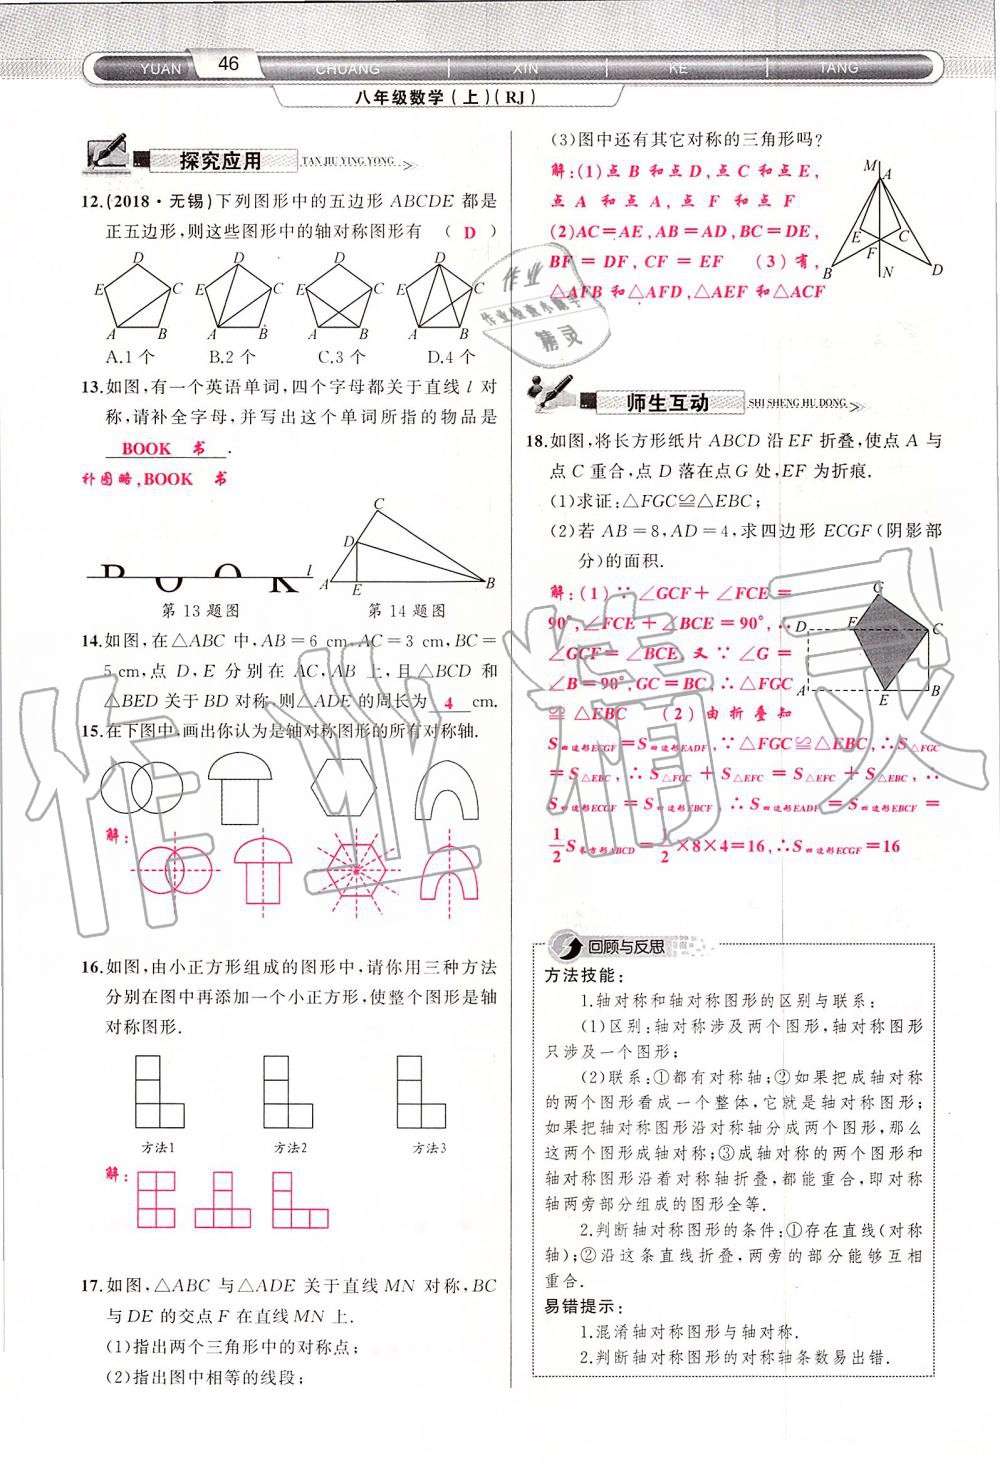 46
YUAN CHUANG XIN KE TANG
八年级数学(上)(RJ)
探究应用 TAN JIU YING YONG
12.(2018·无锡)下列图形中的五边形 ABCDE 都是
正五边形,则这些图形中的轴对称图形有 ( D )
D D D D
E C E C E C E C
A B A B A B A B
A.1 个 B.2 个 C.3 个 D.4 个
13.如图,有一个英语单词,四个字母都关于直线 l 对
称,请补全字母,并写出这个单词所指的物品是
BOOK 书 .
补图略,BOOK 书
BOOK l
C
D
A E B
第 13 题图 第 14 题图
14.如图,在△ABC 中,AB=6 cm,AC=3 cm,BC=
5 cm,点 D,E 分别在 AC,AB 上,且△BCD 和
△BED 关于 BD 对称,则△ADE 的周长为 4 cm.
15.在下图中,画出你认为是轴对称图形的所有对称轴.
解:
16.如图,由小正方形组成的图形中,请你用三种方法
分别在图中再添加一个小正方形,使整个图形是轴
对称图形.
方法1 方法2 方法3
解:
17.如图,△ABC 与△ADE 关于直线 MN 对称,BC
与 DE 的交点 F 在直线 MN 上.
(1)指出两个三角形中的对称点;
(2)指出图中相等的线段;
(3)图中还有其它对称的三角形吗?
解:(1)点 B 和点 D,点 C 和点 E,
点 A 和点 A,点 F 和点 F
(2)AC=AE,AB=AD,BC=DE,
BF=DF,CF=EF (3)有,
△AFB 和△AFD,△AEF 和△ACF
M
A
E C
F
B N D
师生互动 SHI SHENG HU DONG
18.如图,将长方形纸片 ABCD 沿 EF 折叠,使点 A 与
点 C 重合,点 D 落在点 G 处,EF 为折痕.
(1)求证:△FGC≌△EBC;
(2)若 AB=8,AD=4,求四边形 ECGF(阴影部
分)的面积.
解:(1)∵∠GCF+∠FCE=
90°,∠FCE+∠BCE=90°,∴
∠GCF=∠BCE 又∵∠G=
∠B=90°,GC=BC,∴△FGC
≌△EBC (2)由折叠知
S四边形ECGF=S四边形EADF,∵△FGC≌△EBC,∴S△FGC
=S△EBC,∴S△FGC+S△EFC=S△EFC+S△EBC,∴
S四边形ECGF=S四边形EBCF,∴S四边形EADF=S四边形EBCF=
1/2 S长方形ABCD=1/2×8×4=16,∴S四边形ECGF=16
G
D F C
A E B
回顾与反思
方法技能:
1.轴对称和轴对称图形的区别与联系:
(1)区别:轴对称涉及两个图形,轴对称图形
只涉及一个图形;
(2)联系:①都有对称轴;②如果把成轴对称
的两个图形看成一个整体,它就是轴对称图形;
如果把轴对称图形沿对称轴分成两个图形,那么
这两个图形成轴对称;③成轴对称的两个图形和
轴对称图形沿着对称轴折叠,都能重合,即对称
轴两旁部分组成的图形全等.
2.判断轴对称图形的条件:①存在直线(对称
轴);②沿这条直线折叠,两旁的部分能够互相
重合.
易错提示:
1.混淆轴对称图形与轴对称.
2.判断轴对称图形的对称轴条数易出错.
作业精灵